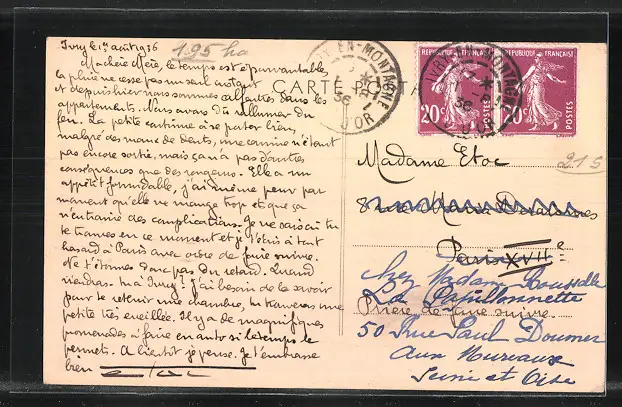 Ivry le 1er août 1936
195 ha
Ma chère Mère, le temps est épouvantable
la pluie ne cesse pas un seul instant
et depuis hier nous sommes calfeutrés dans les
appartements. Nous avons dû rallumer du
feu. La petite continue à se porter bien,
malgré des maux de dents, une canine n'étant
pas encore sortie, mais ça n'a pas d'autres
conséquences que des rougeurs. Elle a un
appétit formidable, j'ai même peur par
moment qu'elle ne mange trop et que ça
n'entraîne des complications. Je ne sais où tu
te trouves en ce moment et je t'écris à tout
hasard à Paris avec ordre de faire suivre.
Ne t'étonnes donc pas du retard. Quand
viendras-tu à Ivry? j'ai besoin de le savoir
pour te retenir une chambre, tu trouveras une
petite très éveillée. Il y a de magnifiques
promenades à faire en auto si le temps le
permet. A bientôt je pense. Je t'embrasse
bien
CARTE POSTALE
IVRY-EN-MONTAGNE
CÔTE D'OR
REPUBLIQUE FRANÇAISE
20c
POSTES
REPUBLIQUE FRANÇAISE
20c
POSTES
IVRY-EN-MONTAGNE
D'OR
215
Madame Etoc
8 rue Maria Deraismes
Paris XVIIe
Prière de faire suivre
Chez Madame Rousselle
La Papillonnette
50 Rue Paul Doumer
Aux Mureaux
Seine et Oise